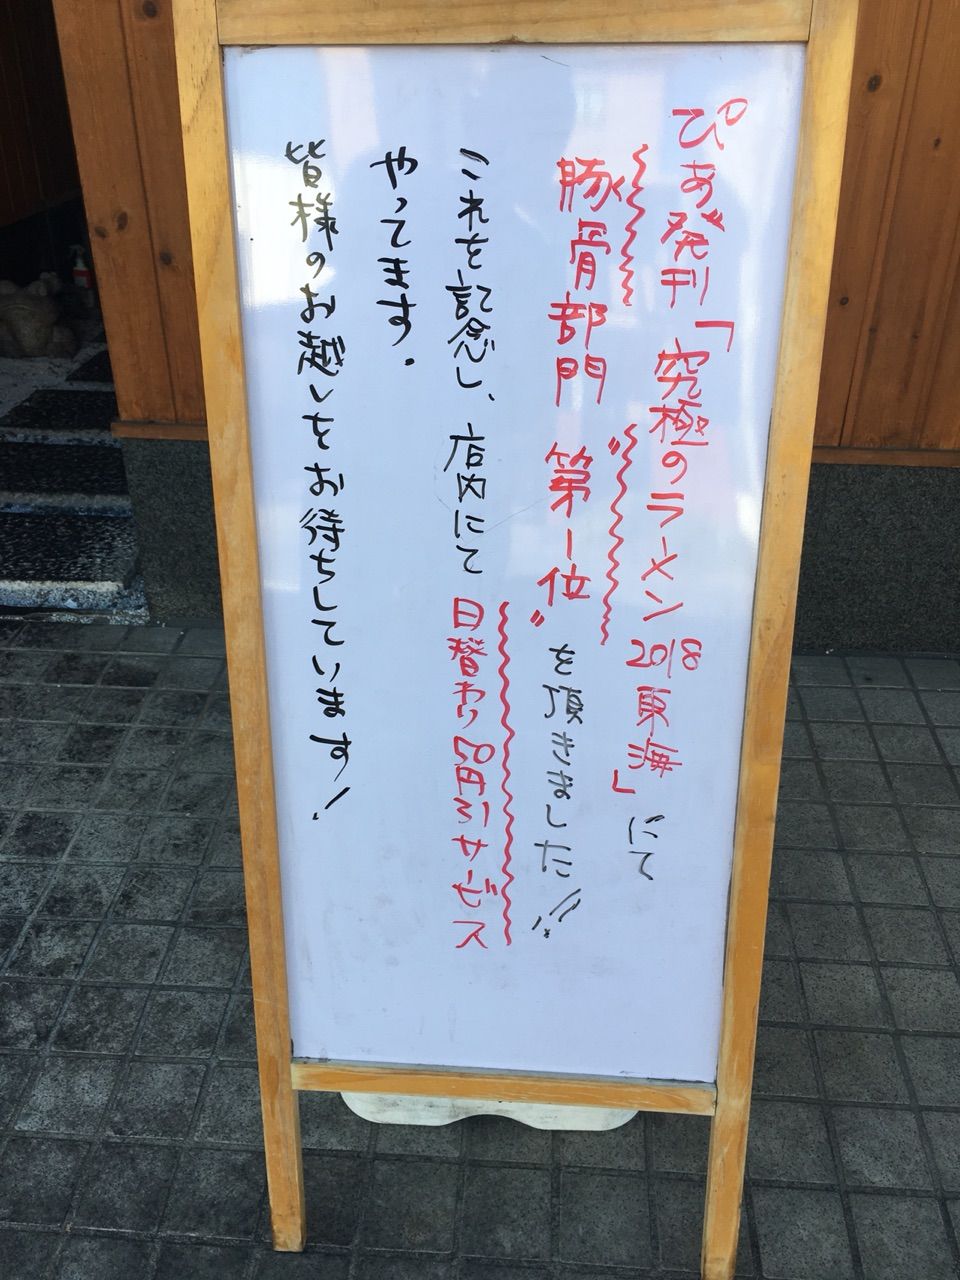 ぴあ発刊「究極のラーメン2018東海」にて
豚骨部門 第一位〟を頂きました!!
これを記念し、店内にて日替わり50円引サービス
やってます.
皆様のお越しをお待ちしています!